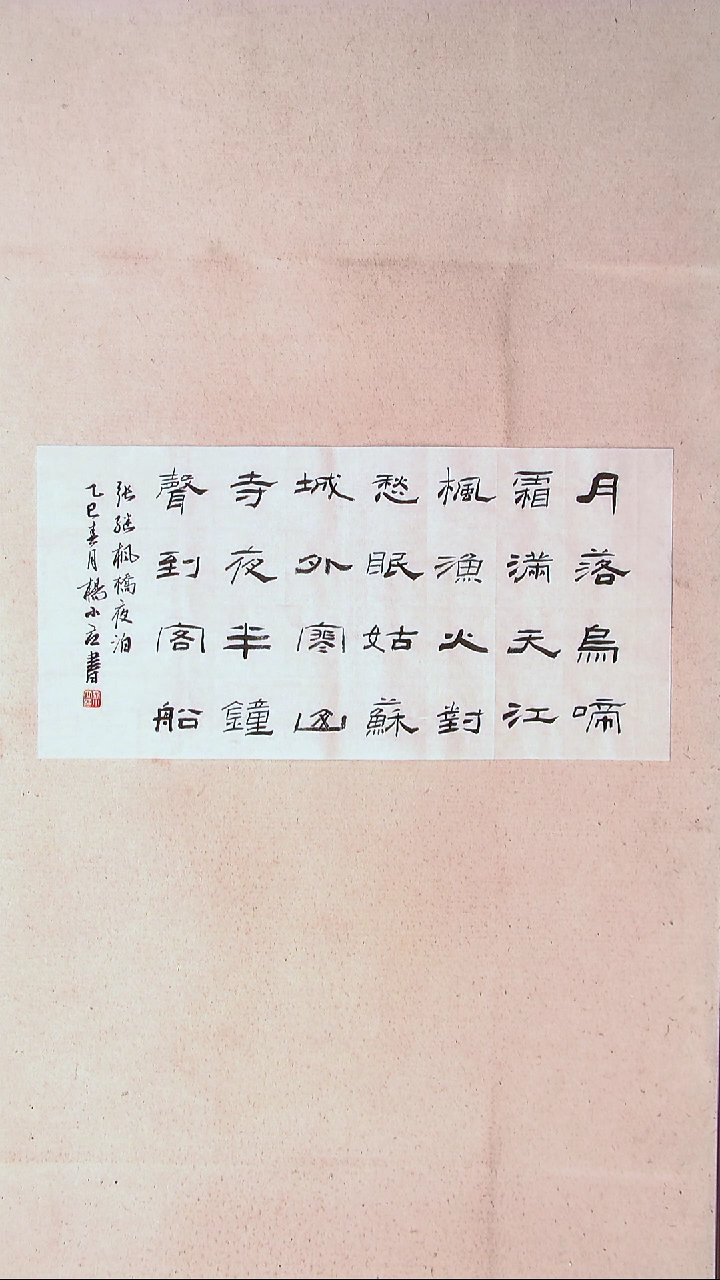 月落烏啼
霜滿天江
楓漁火對
愁眠姑蘇
城外寒山
寺夜半鐘
聲到客船
张继枫橋夜泊
乙巳春月楊小
書